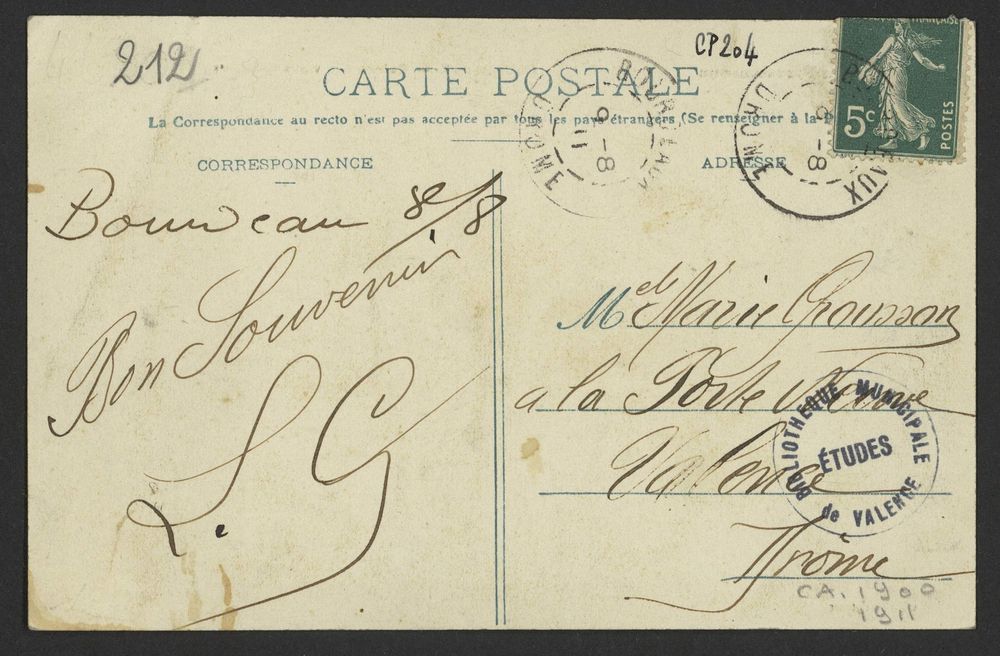 212
CP204
CARTE POSTALE
La Correspondance au recto n'est pas acceptée par tous les pays étrangers (Se renseigner à la
CORRESPONDANCE
ADRESSE
BOURDEAUX
8-8
11
DROME
BOURDEAUX
8-8
DROME
5c
POSTES
Bourdeau 8/8
Bon Souvenir
L. G
Melle Marie Chousson
a la Porte
Valence
Drôme
BIBLIOTHEQUE MUNICIPALE
ÉTUDES
de VALENCE
CA. 1900
1911